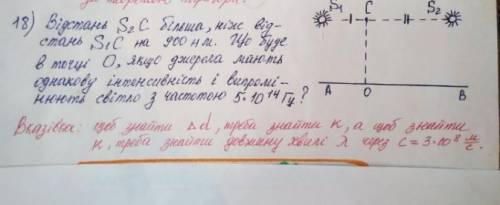 18) Відстань S₂C більша, ніж від-
стань S₁C на 900 нм. Що буде
в точці O, якщо джерела мають
однакову інтенсивність і випромі-
нюють світло з частотою 5·10¹⁴ Гц?
S₁ C S₂
A O B
Вказівка: щоб знайти Δd, треба знайти k, а щоб знайти
k, треба знайти довжину хвилі λ через c = 3·10⁸ м/с.